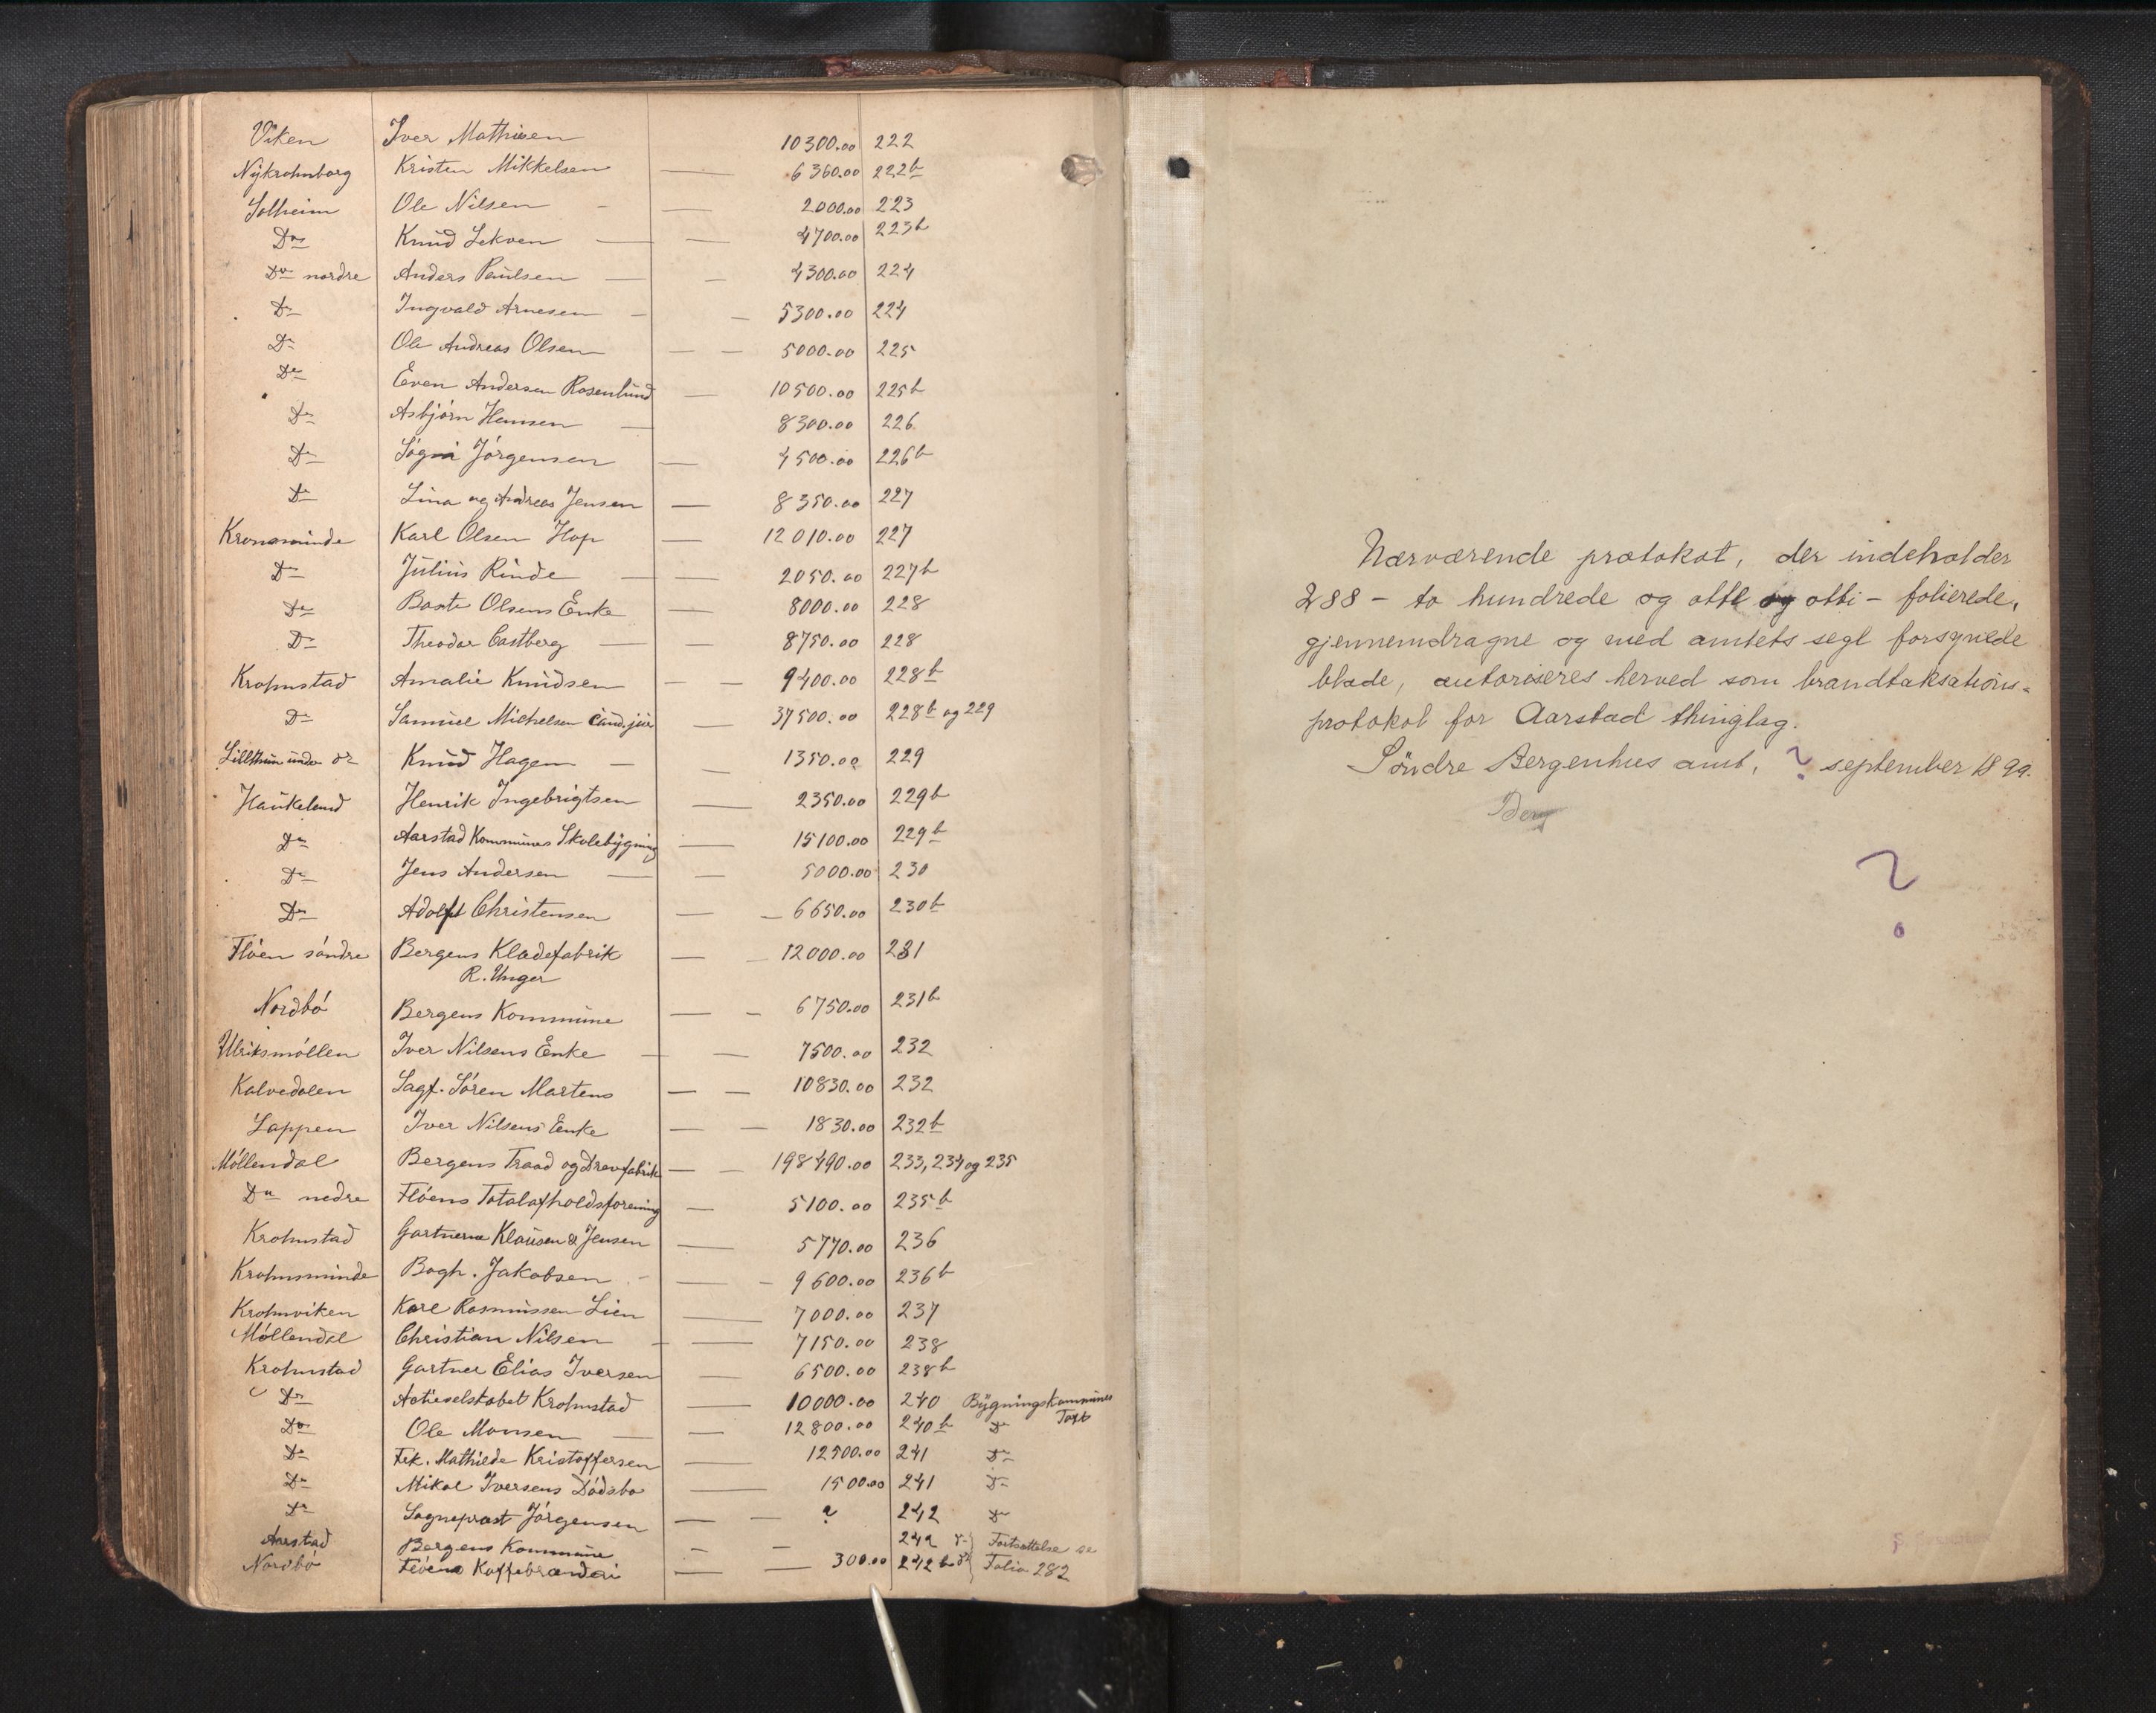 Viken Iver Mathisen 10300.00 222
Nykrohnborg Kristen Mikkelsen — 6360.00 222b
Solheim Ole Nilsen - — 2000.00 223
Do Knud Lekven — — 4700.00 223b
Do nordre Anders Paulsen — — 4300.00 224
Do Ingvald Arnesen - — 5300.00 224
Do Ole Andreas Olsen — — 5000.00 225
Do Even Andersen Rosenlund — 10500.00 225b
Do Asbjörn Hansen — 8300.00 226
Do Jörgensen — 4500.00 226b
Do Lina og Andreas Jensen — 8350.00 227
Kronsminde Karl Olsen Hop — 12010.00 227
Do Julius Rinde — — 2050.00 227b
Do Olsens Enke — 8000.00 228
Do Theodor Castberg — — 8750.00 228
Krohnstad Amalie Knudsen — — 9400.00 228b
Do Samuel Michelsen Cand. jur — 37500.00 228b og 229
under do Knud Hagen — — 1350.00 229
Haukeland Henrik Ingebrigtsen — 2350.00 229b
Do Aarstad Kommunes Skolebygning — 15100.00 229b
Do Jens Andersen — — 5000.00 230
Do Adolf Christensen — — 6650.00 230b
Flöen söndre Bergens Kladefabrik — — 12000.00 231
R. Unger
Nordbö Bergens Kommune — - 6750.00 231b
Ulriksmöllen Iver Nilsens Enke — — 7500.00 232
Kalvedalen Sagf. Sören Martens — — 10830.00 232
Lappen Iver Nilsens Enke — — 1830.00 232b
Möllendal Bergens Traad og Drevfabrik — — 198490.00 233, 234 og 235
Do nedre Flöens Totalafholdsforening — 5100.00 235b
Krohnstad Gartnerne Klausen & Jensen — 5770.00 236
Krohnsminde Bogh. Jakobsen - — - 9600.00 236b
Krohnviken Karl Rasmussen Lien — 7000.00 237
Möllendal Christian Nilsen — — 7150.00 238
Krohnstad Gartner Elias Iversen — 6500.00 238b
Do Actieselskabet Krohnstad — 10000.00 240 Bygningskommunes
Taxt
Do Ole Monsen — — 12800.00 240b Do
Do Frk. Mathilde Kristoffersen — 12500.00 241 Do
Do Mikal Iversens Dödsbo — 1500.00 241 Do
Do Sogneprest Jörgensen — - ? 242 Do
Aarstad Bergens Kommune - - 242 Do Fortsættelse se
Nordbö Flöens Kaffebrænderi — — 300.00 242b Do Folio 282
Nærværende protokol, der indeholder
288 - to hundrede og otte og otti - folierede,
gjennemdragne og med amtets segl forsynede
blade, autoriseres herved som brandtaksations-
protokol for Aarstad thinglag.
Söndre Bergenhus amt, ? september 1899.
?